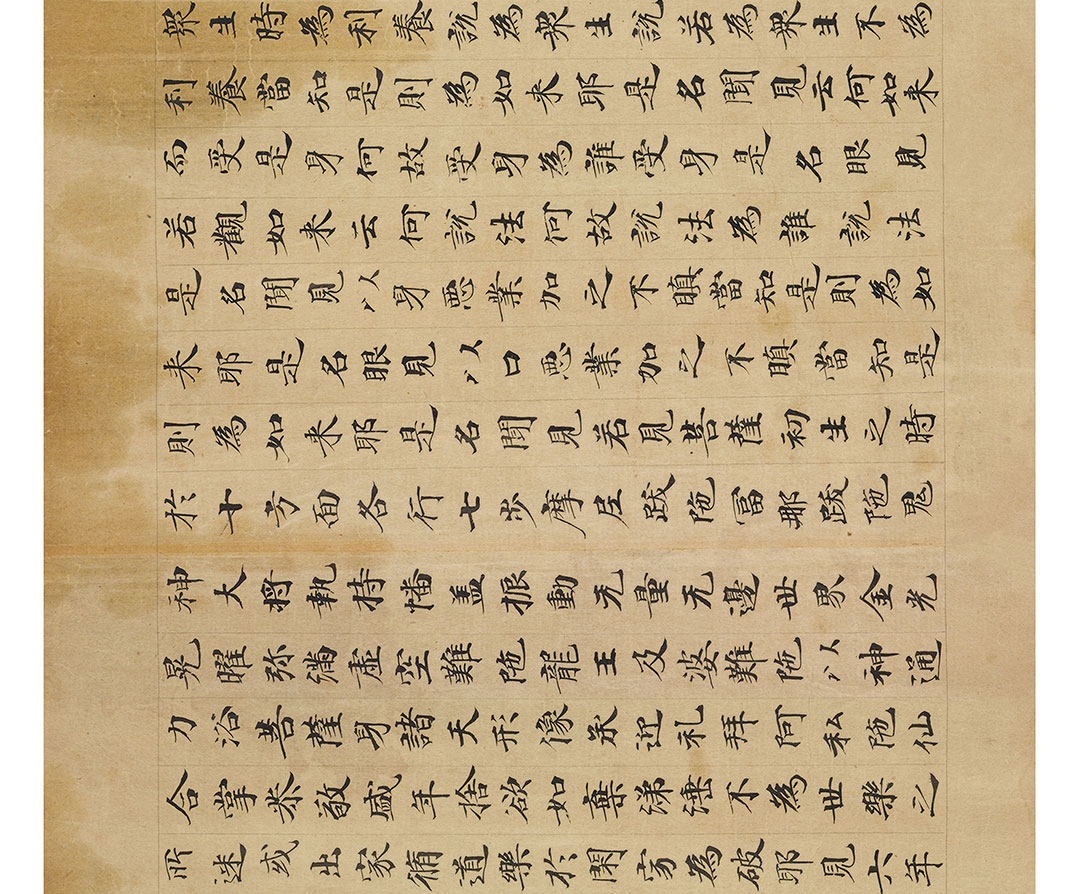 衆生時為利養說為衆生說若為衆生不為
利養當知是則為如来耶是名聞見云何如来
而受是身何故受身為誰受身是名眼見
若觀如来云何說法何故說法為誰說法
是名聞見以身悪業加之不瞋當知是則為如
来耶是名眼見以口悪業加之不瞋當知是
則為如来耶是名聞見若見菩薩初生之時
於十方面各行七步摩尼跋陁富那跋陁鬼
神大将執持幡盖振動无量无邊世界金光
晃曜弥滿虛空難陁龍王及婆難陁以神通
力浴菩薩身諸天形像承迎礼拜阿私陁仙
合掌恭敬盛年捨欲如棄涕唾不為世樂之
所迷或出家脩道樂於閑寂為破耶見六年